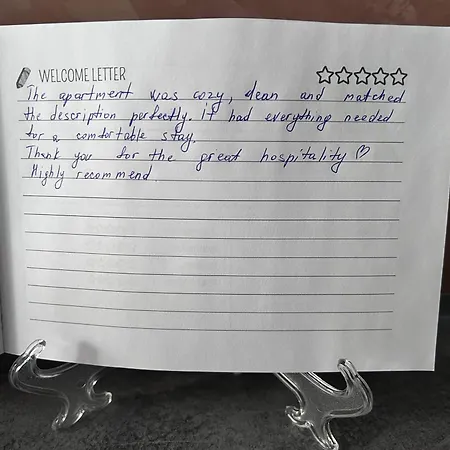 WELCOME LETTER
The apartment was cozy, clean and matched
the description perfectly. it had everything needed
for a comfortable stay.
Thank you for the great hospitality ♡
Highly recommend